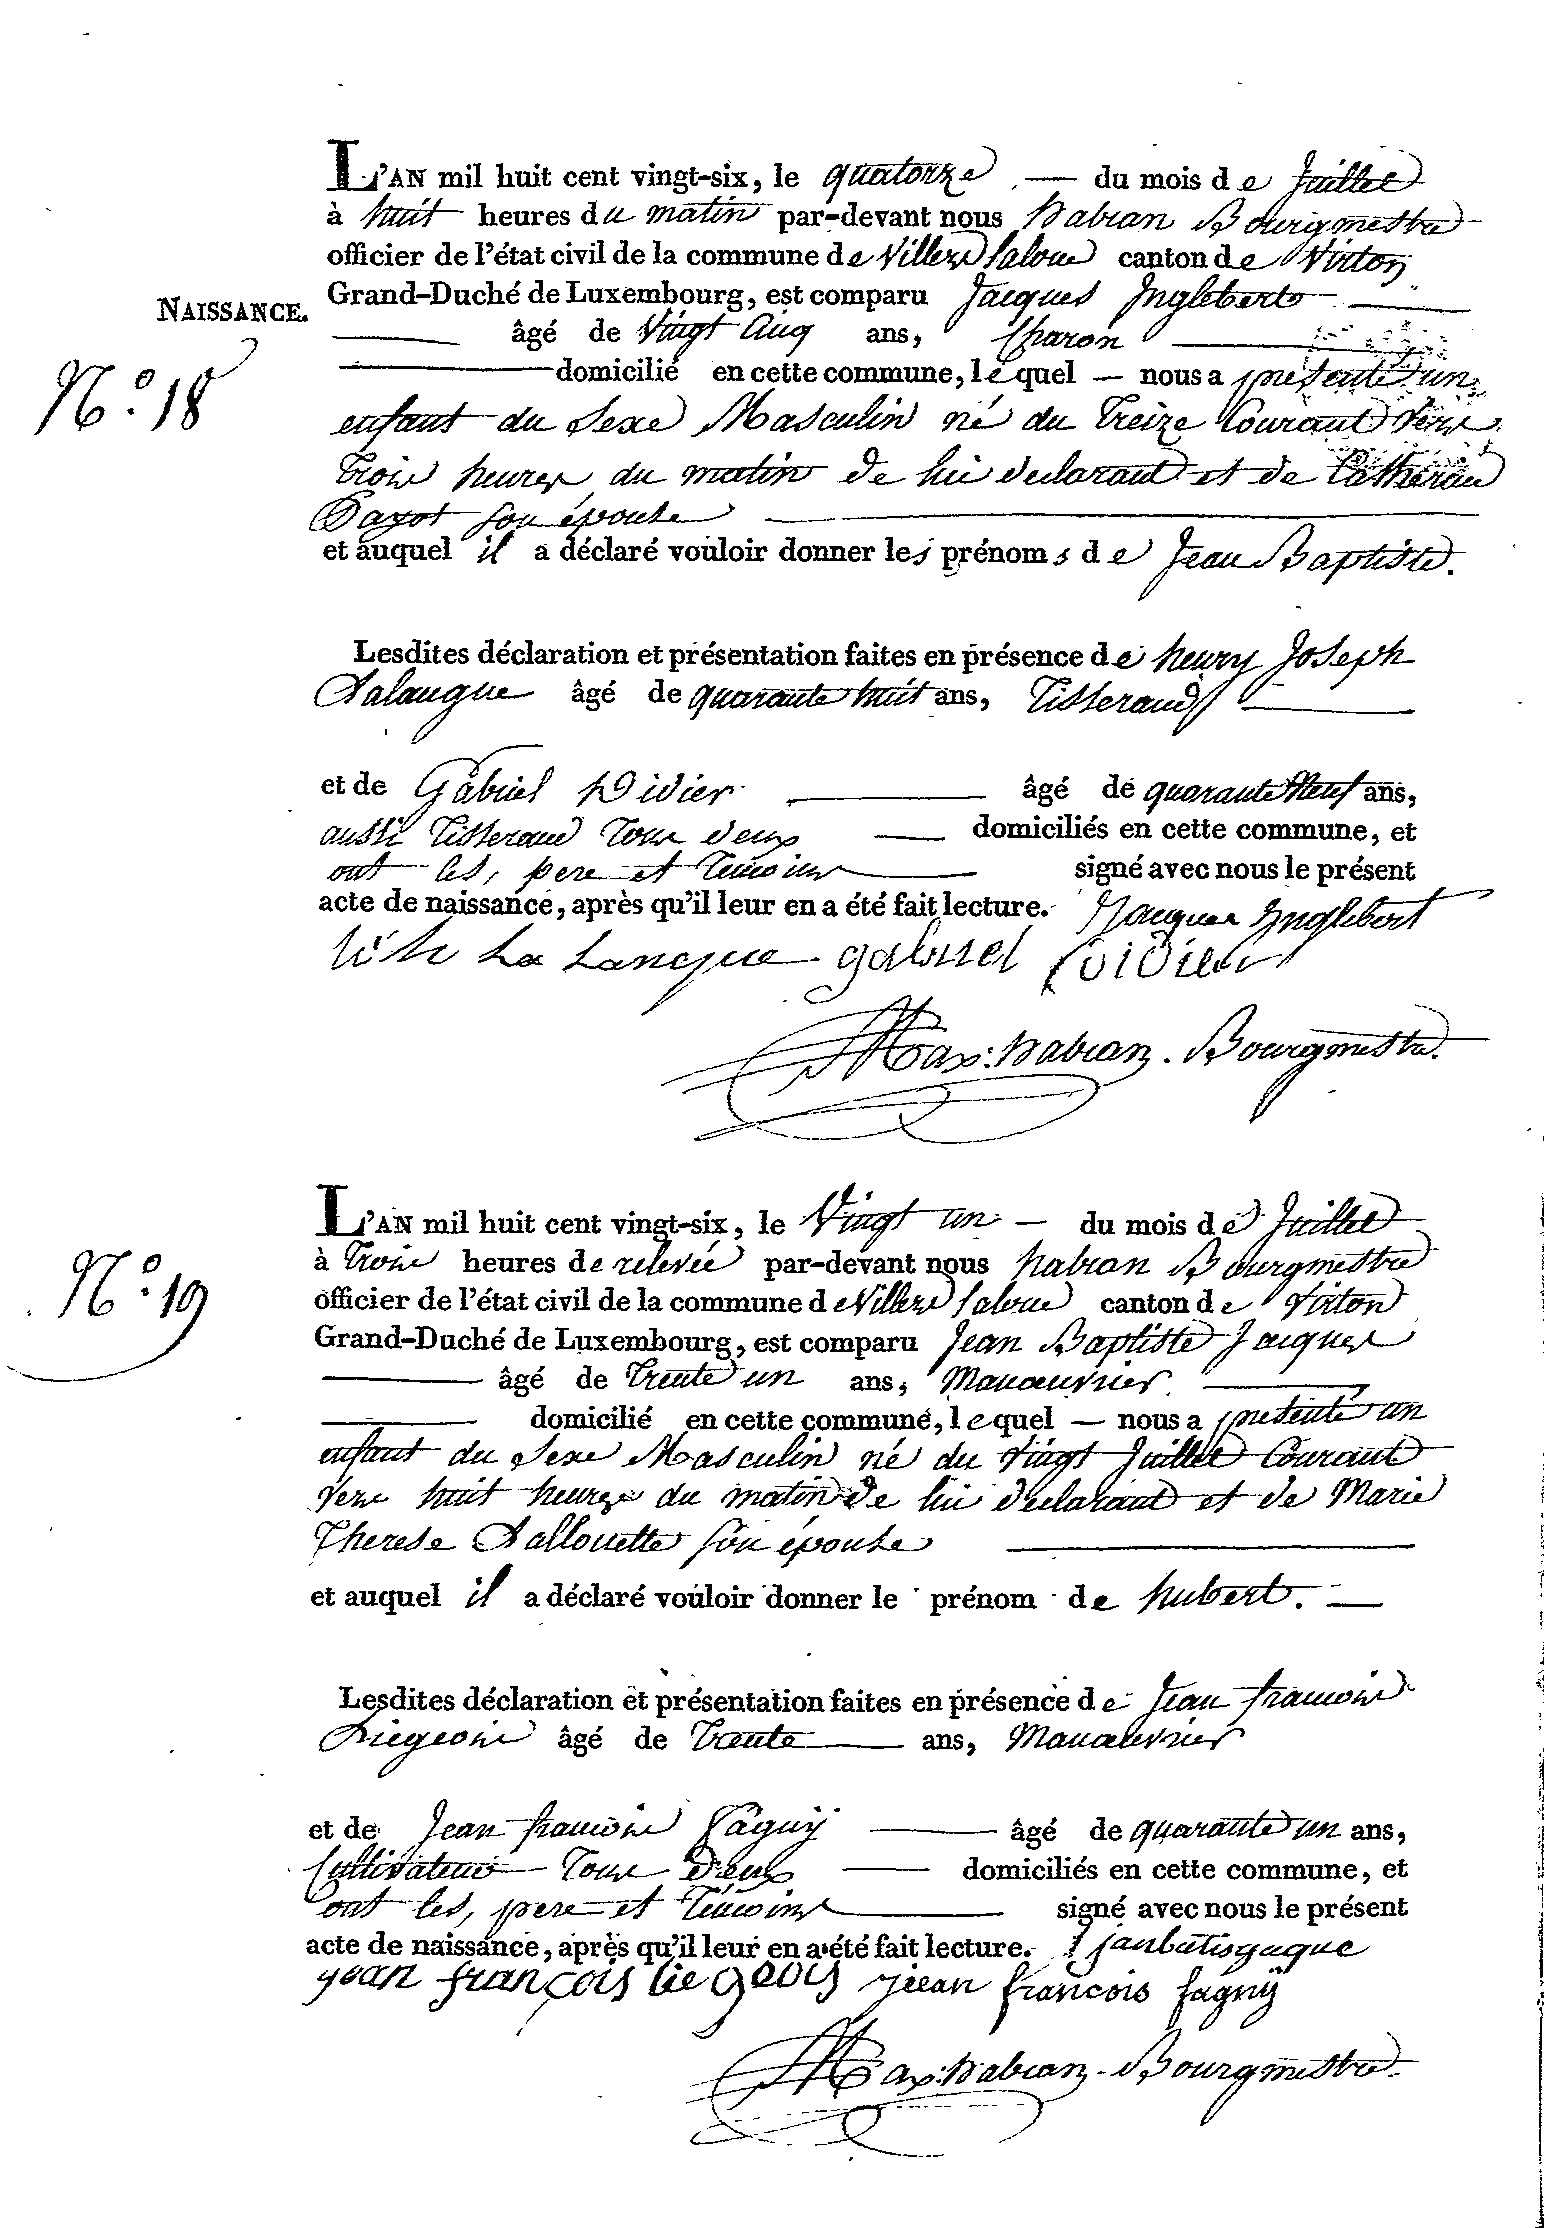 L'AN mil huit cent vingt-six, le quatorze — du mois de Juillet
à huit heures du matin par-devant nous habran Bourgmestre
officier de l'état civil de la commune de Villers Laloue canton de Virton
NAISSANCE. Grand-Duché de Luxembourg, est comparu Jacques Ingleberts
âgé de Vingt Cinq ans, Charon
N.º 18
domicilié en cette commune, lequel — nous a presenté un
enfant du Sexe Masculin né du Treize Courant Vers
Trois heures du matin de lui declarant et de Catherine
son épouse
et auquel il a déclaré vouloir donner les prénoms de Jean Baptiste.
Lesdites déclaration et présentation faites en présence de henry Joseph
Lalangue âgé de quarante huit ans, Tisserand
et de Gabriel Didier âgé de quarante Neuf ans,
aussi Tisserand Tous deux domiciliés en cette commune, et
ont les, pere et Temoins signé avec nous le présent
acte de naissance, après qu'il leur en a été fait lecture. Jacques Inglebert
La Langue gabriel Didier
Max: habran. Bourgmestre.
L'AN mil huit cent vingt-six, le Vingt un — du mois de Juillet
à Trois heures de relevée par-devant nous habran Bourgmestre
N.º 19
officier de l'état civil de la commune de Villers Laloue canton de Virton
Grand-Duché de Luxembourg, est comparu Jean Baptiste Jacques
âgé de Trente un ans, Manoeuvrier
domicilié en cette commune, lequel — nous a presenté un
enfant du Sexe Masculin né du Vingt Juillet Courant
Vers huit heures du matin de lui declarant et de Marie
Therese Lallouette son épouse
et auquel il a déclaré vouloir donner le prénom de hubert. —
Lesdites déclaration et présentation faites en présence de Jean francois
Liegeois âgé de Trente ans, Manoeuvrier
et de Jean francois fagny âgé de quarante un ans,
Cultivateurs Tous Deux domiciliés en cette commune, et
ont les, pere et Témoins signé avec nous le présent
acte de naissance, après qu'il leur en a été fait lecture. janbatisgaque
jean françois liegeois jean francois fagny
Max: habran. Bourgmestre.